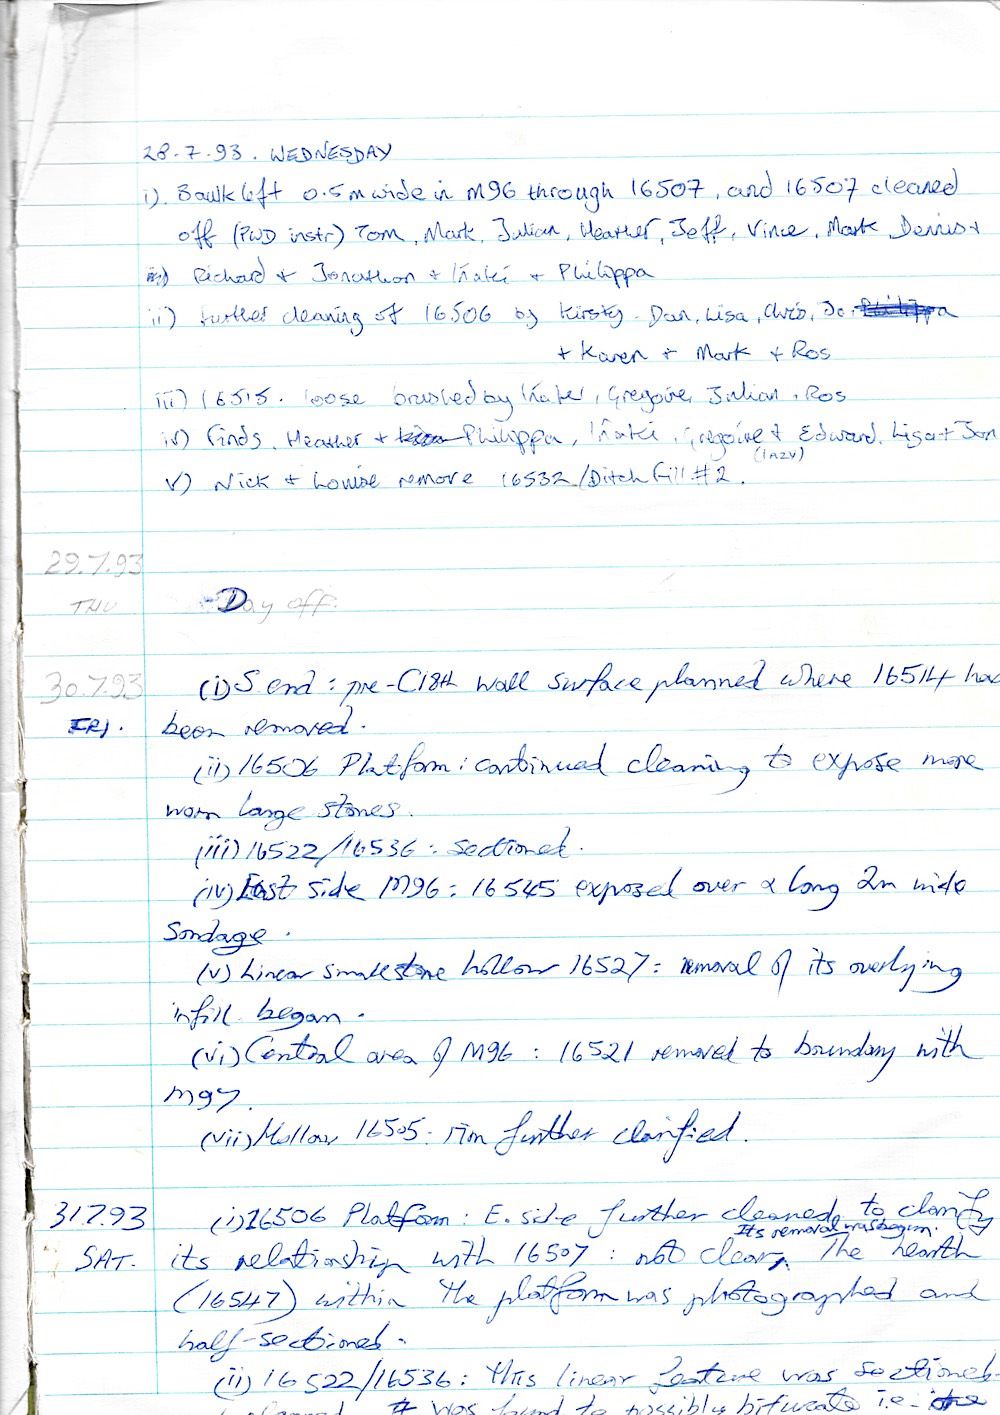 28.7.93. WEDNESDAY
i). Baulk left 0.5m wide in M96 through 16507, and 16507 cleaned
off (PWD instr) Tom, Mark, Julian, Heather, Jeff, Vince, Mark Dennis +
Richard + Jonathon + Iñaki + Philippa
ii) further cleaning of 16506 by Kirsty. Dan, Lisa, Chris, Jo,
+ Karen + Mark + Ros
iii) 16515. loose brushed by Iñaki, Gregoire, Julian, Ros
iv) Finds. Heather + Philippa, Iñaki, Gregoire + Edward. Lisa + Jon
v) Nick + Louise remove 16532/Ditch Fill #2.
29.7.93
THU Day off.
30.7.93 (i) S end : pre-C18th wall surface planned where 16514 had
FRI. been removed.
(ii) 16506 Platform: continued cleaning to expose more
worn large stones.
(iii) 16522/16536: sectioned.
(iv) East side M96: 16545 exposed over a long 2m wide
Sondage.
(v) Linear smallstone hollow 16527: removal of its overlying
infill began.
(vi) Central area of M96: 16521 removed to boundary with
M97.
(vii) Hollow 16505: rim further clarified.
31.7.93 (i) 16506 Platform: E. side further cleaned to clarify
Its removal was begun.
SAT. its relationship with 16507: not clear. The hearth
(16547) within the platform was photographed and
half-sectioned.
(ii) 16522/16536: this linear feature was sectioned
It was found to possibly bifurcate i.e.